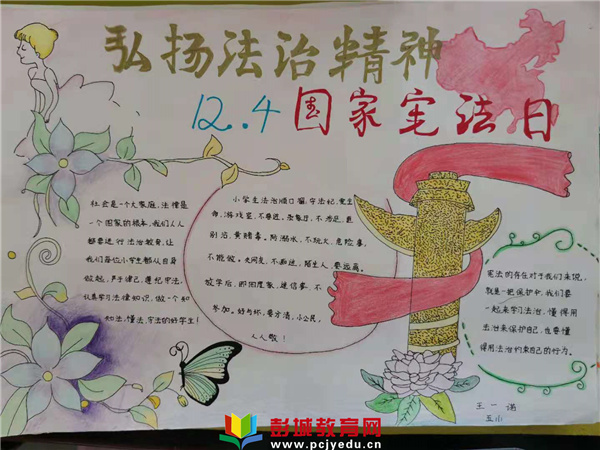 弘扬法治精神
12.4国家宪法日
社会是一个大家庭,法律是
一个国家的根本,我们人人
都要进行法治教育,让
我们每位小学生都从自身
做起,严于律己,遵纪守法,
认真学习法律知识,做一个知
知法,懂法,守法的好学生!
小学生法治顺口溜,守法纪,爱生
命,游戏室,不靠近。杂食厅,不
别沾,黄赌毒。防溺水,不玩火,危险事,
不能做。交网友,不面迷,陌生人,要远离。
放学后,即回屋家,迷信事,不
参加。好与坏,要分清,小公民,
人人敬!
宪法的存在对于我们来说,
就是一把保护伞,我们要
一起来学习法治,懂得用
法治来保护自己,也要懂
得用法治约束自己的行为。
王一诺
五小
彭城教育网
www.pcjyedu.cn